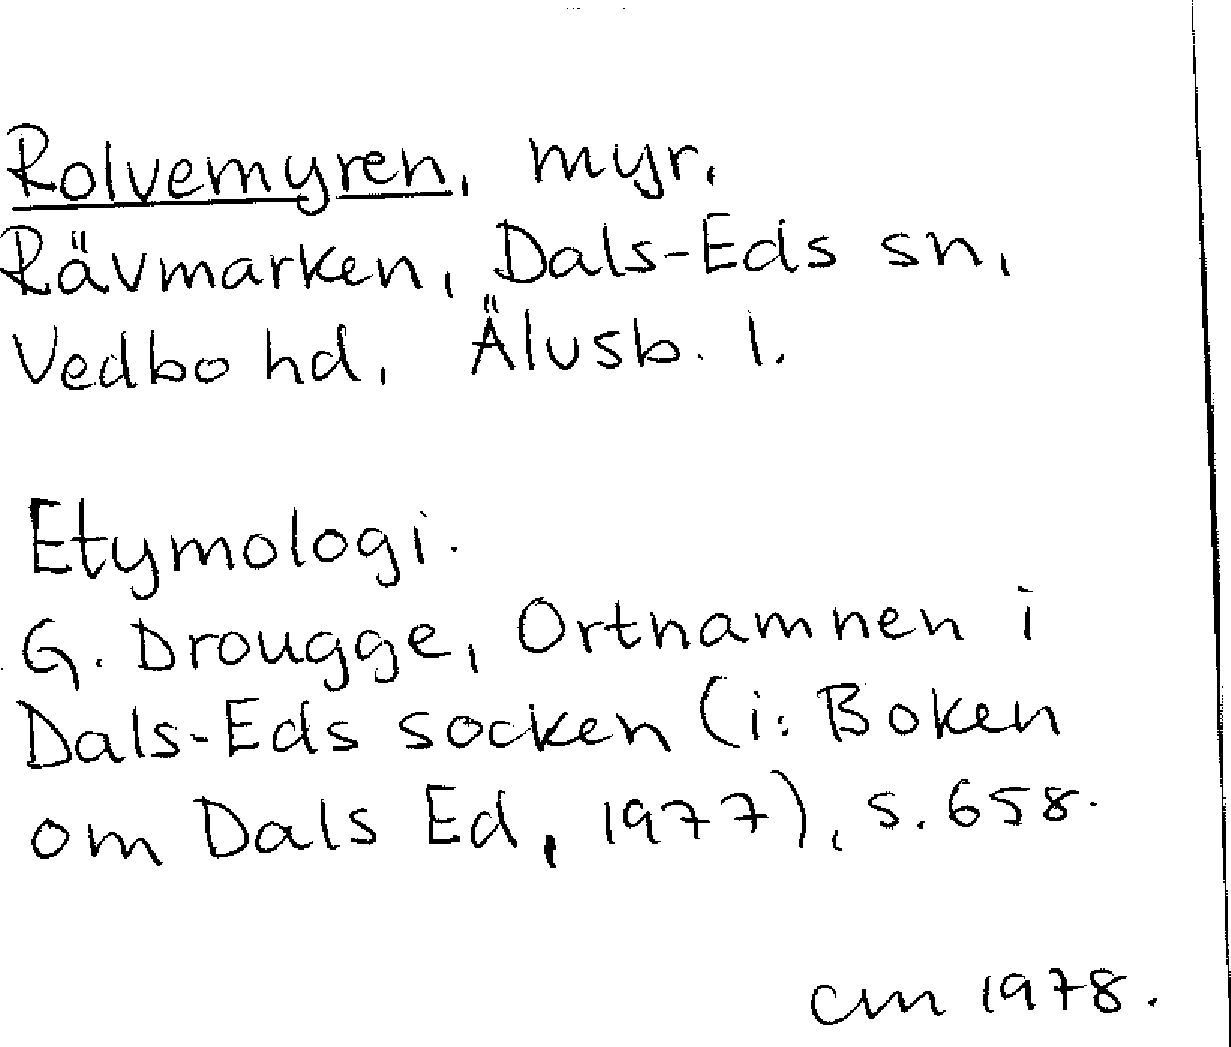 Rolvemyren, myr,
Rävmarken, Dals-Eds sn,
Vedbo hd, Älvsb. l.
Etymologi.
G. Drougge, Ortnamnen i
Dals-Eds socken (i: Boken
om Dals Ed, 1977), s. 658.
cm 1978.